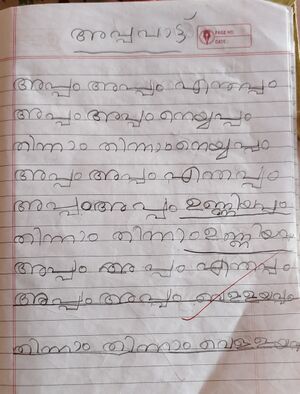 അപ്പപാട്ട്
PAGE NO.
DATE:
അപ്പം അപ്പം എന്തപ്പം
അപ്പം അപ്പം നെയ്യപ്പം
തിന്നാം തിന്നാം നെയ്യപ്പം
അപ്പം അപ്പം എന്തപ്പം
അപ്പം അപ്പം ഉണ്ണിയപ്പം
തിന്നാം തിന്നാം ഉണ്ണിയപ്പം
അപ്പം അപ്പം എന്തപ്പം
അപ്പം അപ്പം വെള്ളയപ്പം
തിന്നാം തിന്നാം